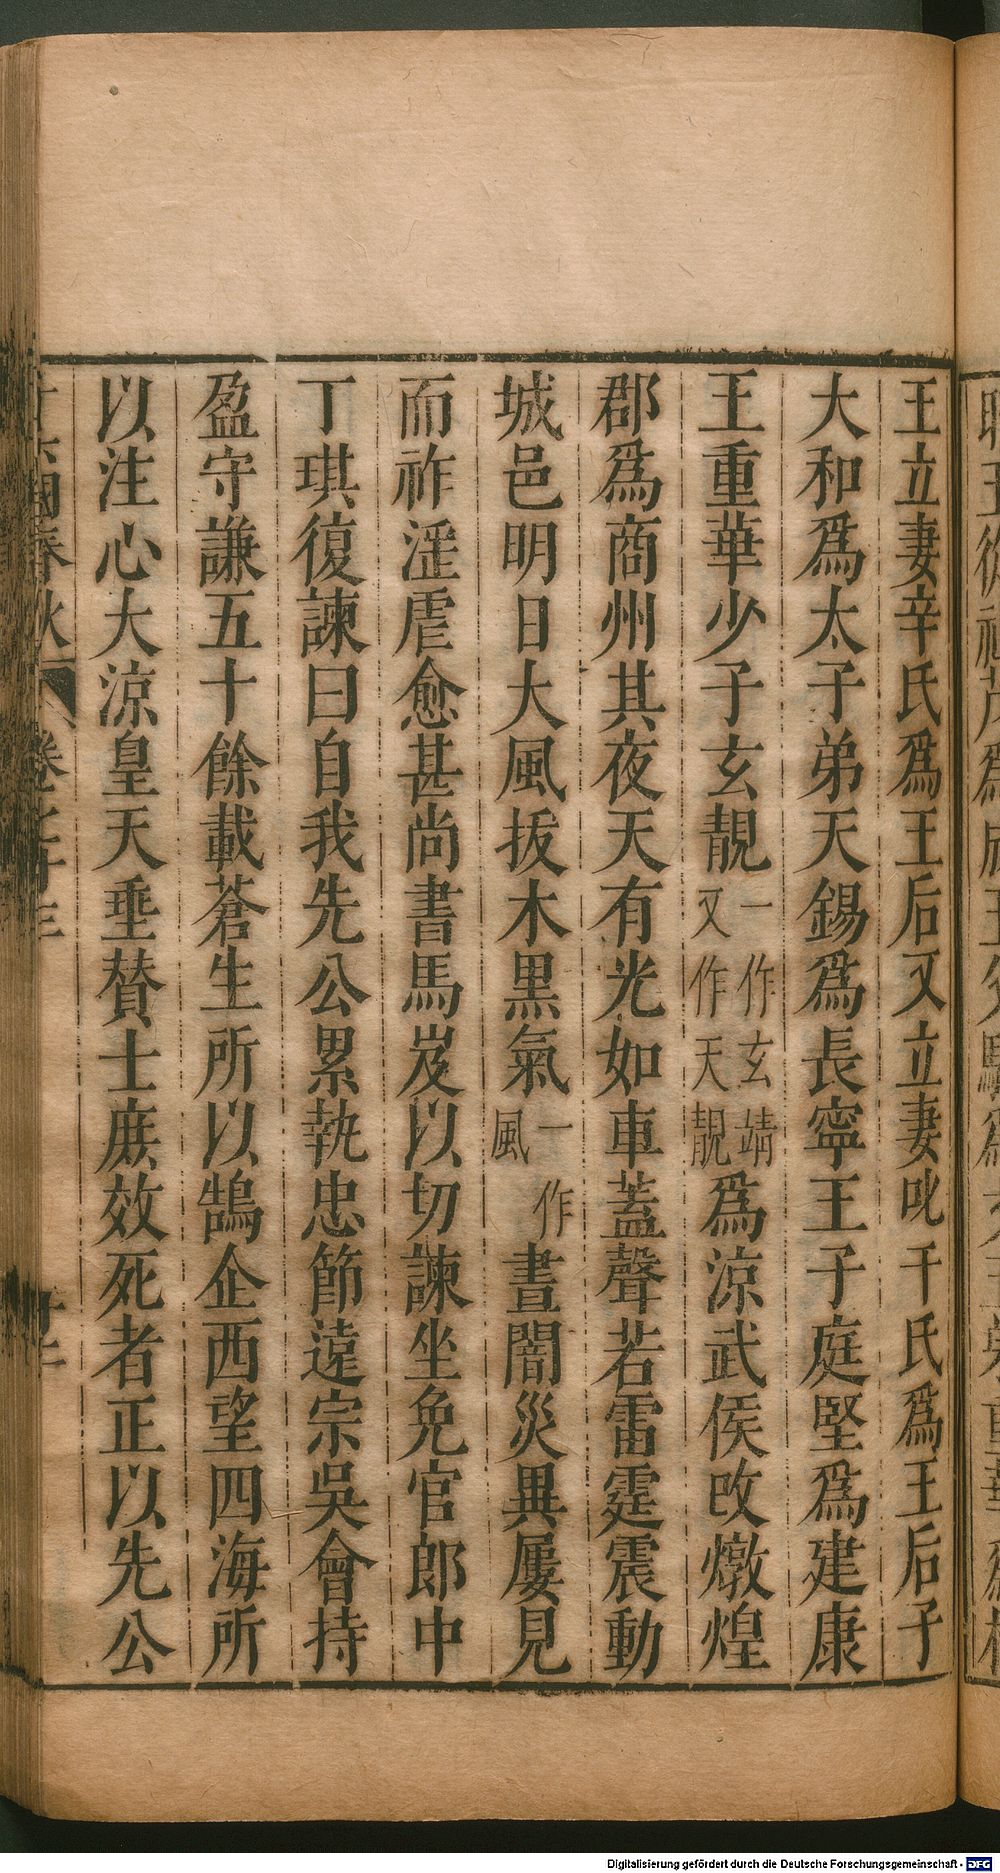 王立妻辛氏爲王后又立妻叱干氏爲王后子
大和爲太子弟天錫爲長寧王子庭堅爲建康
王重華少子玄靚一作玄靖又作天靚爲涼武侯改燉煌
郡爲商州其夜天有光如車蓋聲若雷霆震動
城邑明日大風拔木黒氣一作風晝闇災異屢見
而祚淫虐愈甚尚書馬岌以切諫坐免官郎中
丁琪復諫曰自我先公累執忠節遠宗吳會持
盈守謙五十餘載蒼生所以鵠企西望四海所
以注心大涼皇天垂贊士庶效死者正以先公
國春秋
Digitalisierung gefördert durch die Deutsche Forschungsgemeinschaft - DFG